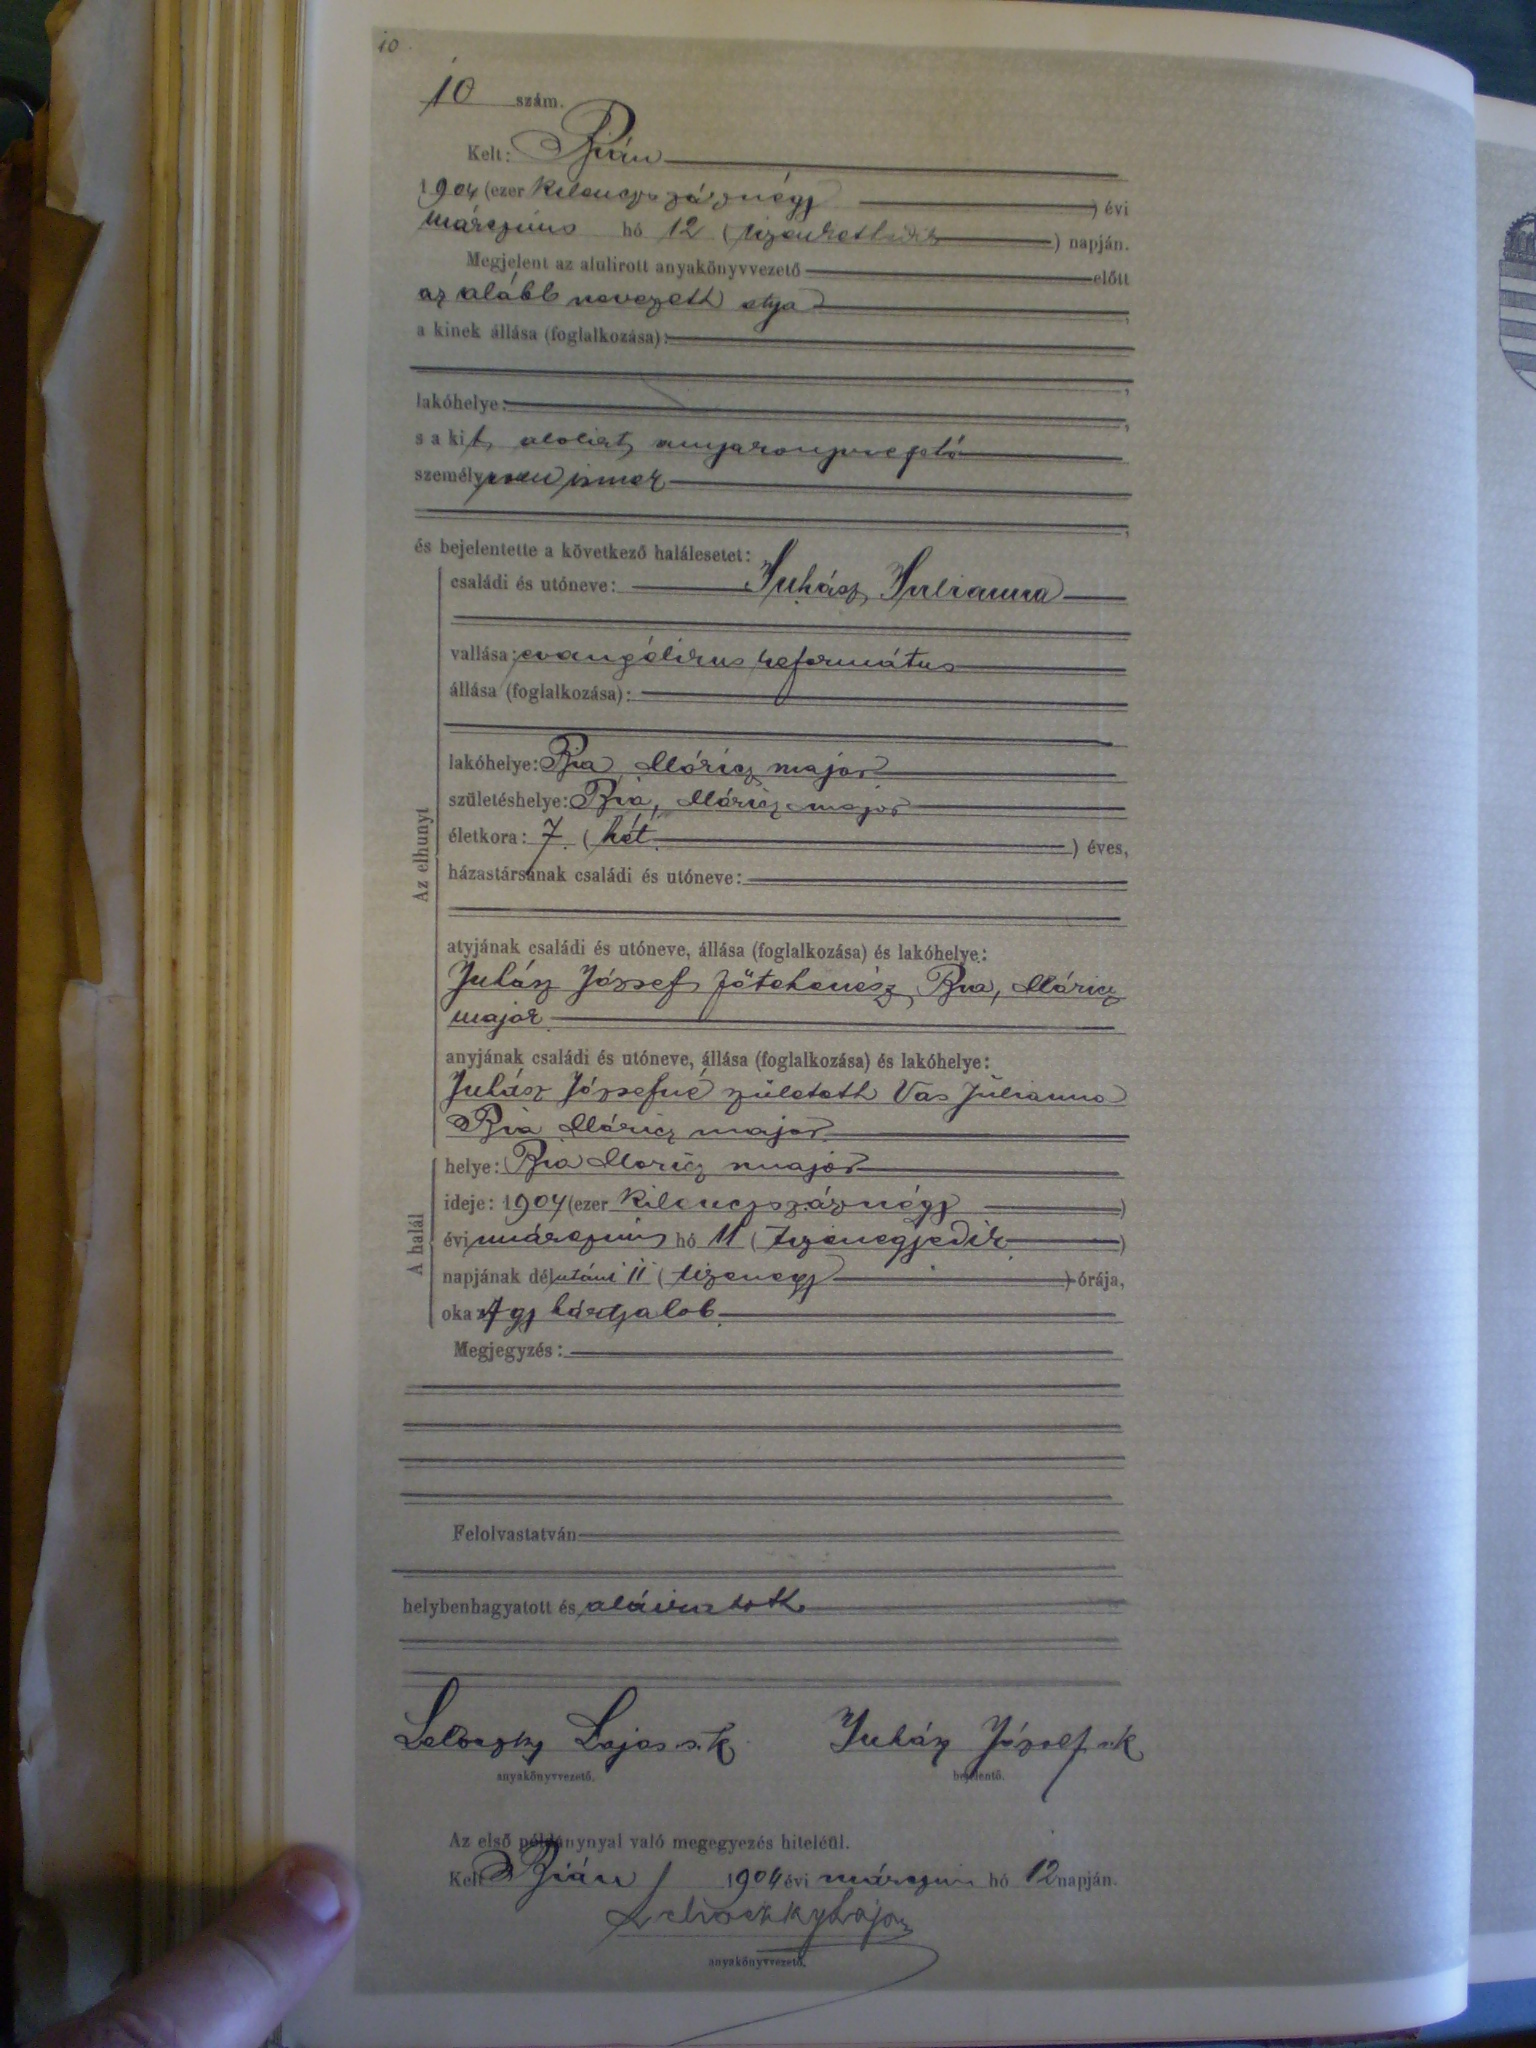 10
10 szám.
Kelt: Bián
1904 (ezer kilenczszáznégy ) évi
márczius hó 12 ( tizenkettedik ) napján.
Megjelent az alulirott anyakönyvvezető előtt
az alább nevezett atya ,
a kinek állása (foglalkozása):
,
lakóhelye: ,
s a kit alolirt anyakönyvvezető
személyesen ismer
,
és bejelentette a következő halálesetet:
családi és utóneve: Juhász Julianna
vallása: evangélikus református
állása (foglalkozása):
lakóhelye: Bia, Móricz major
születéshelye: Bia, Móricz major
életkora: 7. ( hét ) éves,
házastársának családi és utóneve:
Az elhunyt
atyjának családi és utóneve, állása (foglalkozása) és lakóhelye:
Juhász József főtehenész, Bia, Móricz
major
anyjának családi és utóneve, állása (foglalkozása) és lakóhelye:
Juhász Józsefné született Vas Julianna
Bia Móricz major
A halál
helye: Bia Moricz major
ideje: 1904 (ezer kilenczszáznégy )
évi márczius hó 11 ( tizenegyedik )
napjának délutáni 11 ( tizenegy ) órája,
oka: Agyhártyalob.
Megjegyzés:
Felolvastatván
helybenhagyatott és aláiratott
Lajos s. k. Juhász József s. k
anyakönyvvezető. bejelentő.
Az első példánynyal való megegyezés hiteléül.
Kelt Bián 1904 évi márczius hó 12 napján.
Lajos
anyakönyvvezető.